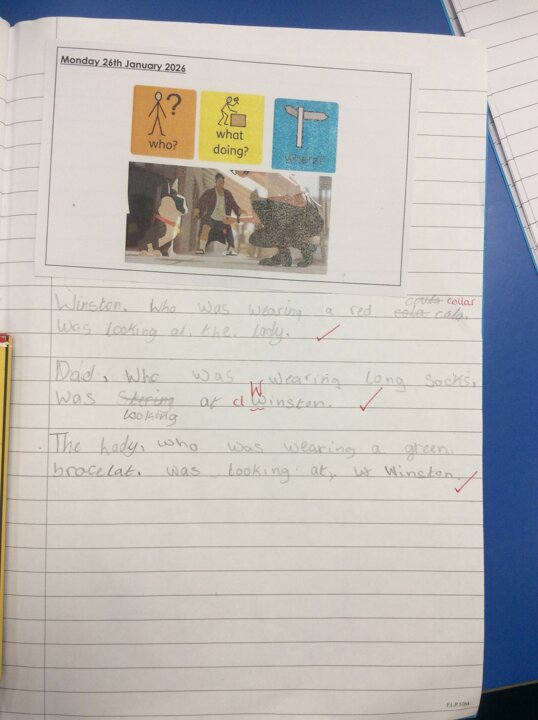 Monday 26th January 2026
who?
what
doing?
where?
collar
Winston, Who was wearing a red cola,
was looking at the lady.
Dad, Who was wearing long socks,
W
was at cl Winston.
looking
The lady, who was wearing a green
bracelat, was looking at, w Winston.
F.L.P.10M